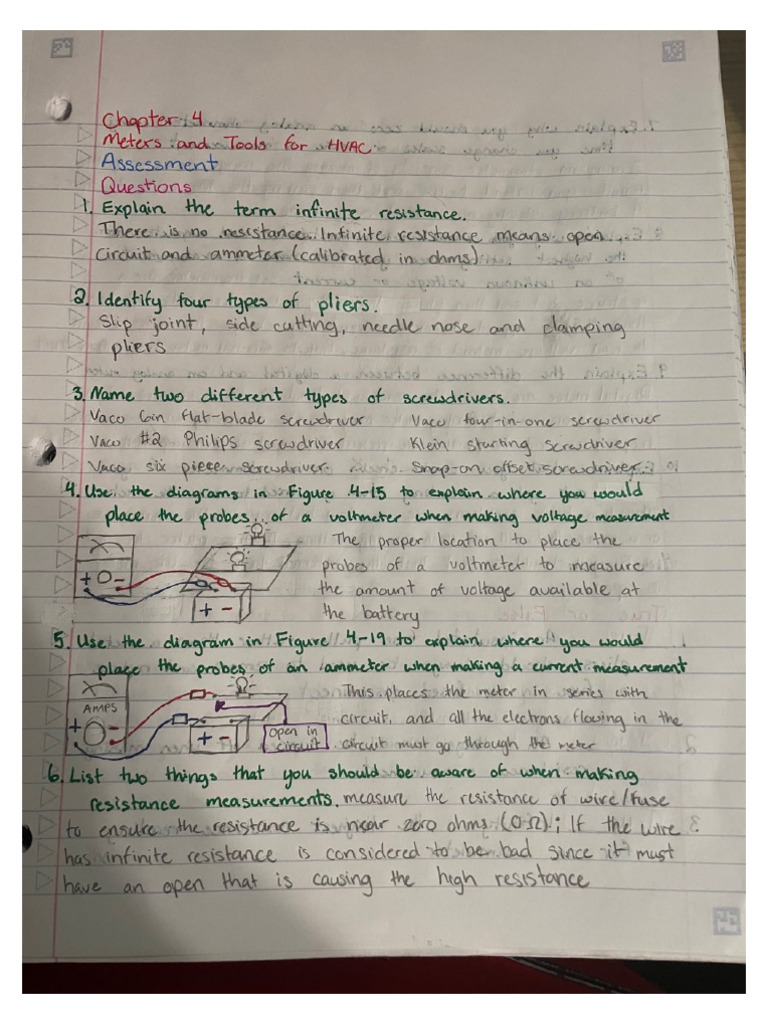 Chapter 4
Meters and Tools for HVAC
Assessment
Questions
1. Explain the term infinite resistance.
There is no resistance. Infinite resistance means open
Circuit and ammeter (calibrated in ohms)
2. Identify four types of pliers.
Slip joint, side cutting, needle nose and clamping
pliers
3. Name two different types of screwdrivers.
Vaco Cain flat-blade screwdriver Vaco four-in-one screwdriver
Vaco #2 Philips screwdriver Klein starting screwdriver
Vaco six piece screwdriver Snap-on offset screwdriver
4. Use the diagrams in Figure 4-15 to explain where you would
place the probes of a voltmeter when making voltage measurement
The proper location to place the
probes of a voltmeter to measure
the amount of voltage available at
the battery
+ -
+ -
5. Use the diagram in Figure 4-19 to explain where you would
place the probes of an ammeter when making a current measurement
This places the meter in series with
circuit, and all the electrons flowing in the
circuit must go through the meter
AMPS
+ -
+ -
open in
circuit
6. List two things that you should be aware of when making
resistance measurements. measure the resistance of wire/fuse
to ensure the resistance is near zero ohms (0 Ω); If the wire
has infinite resistance is considered to be bad since it must
have an open that is causing the high resistance